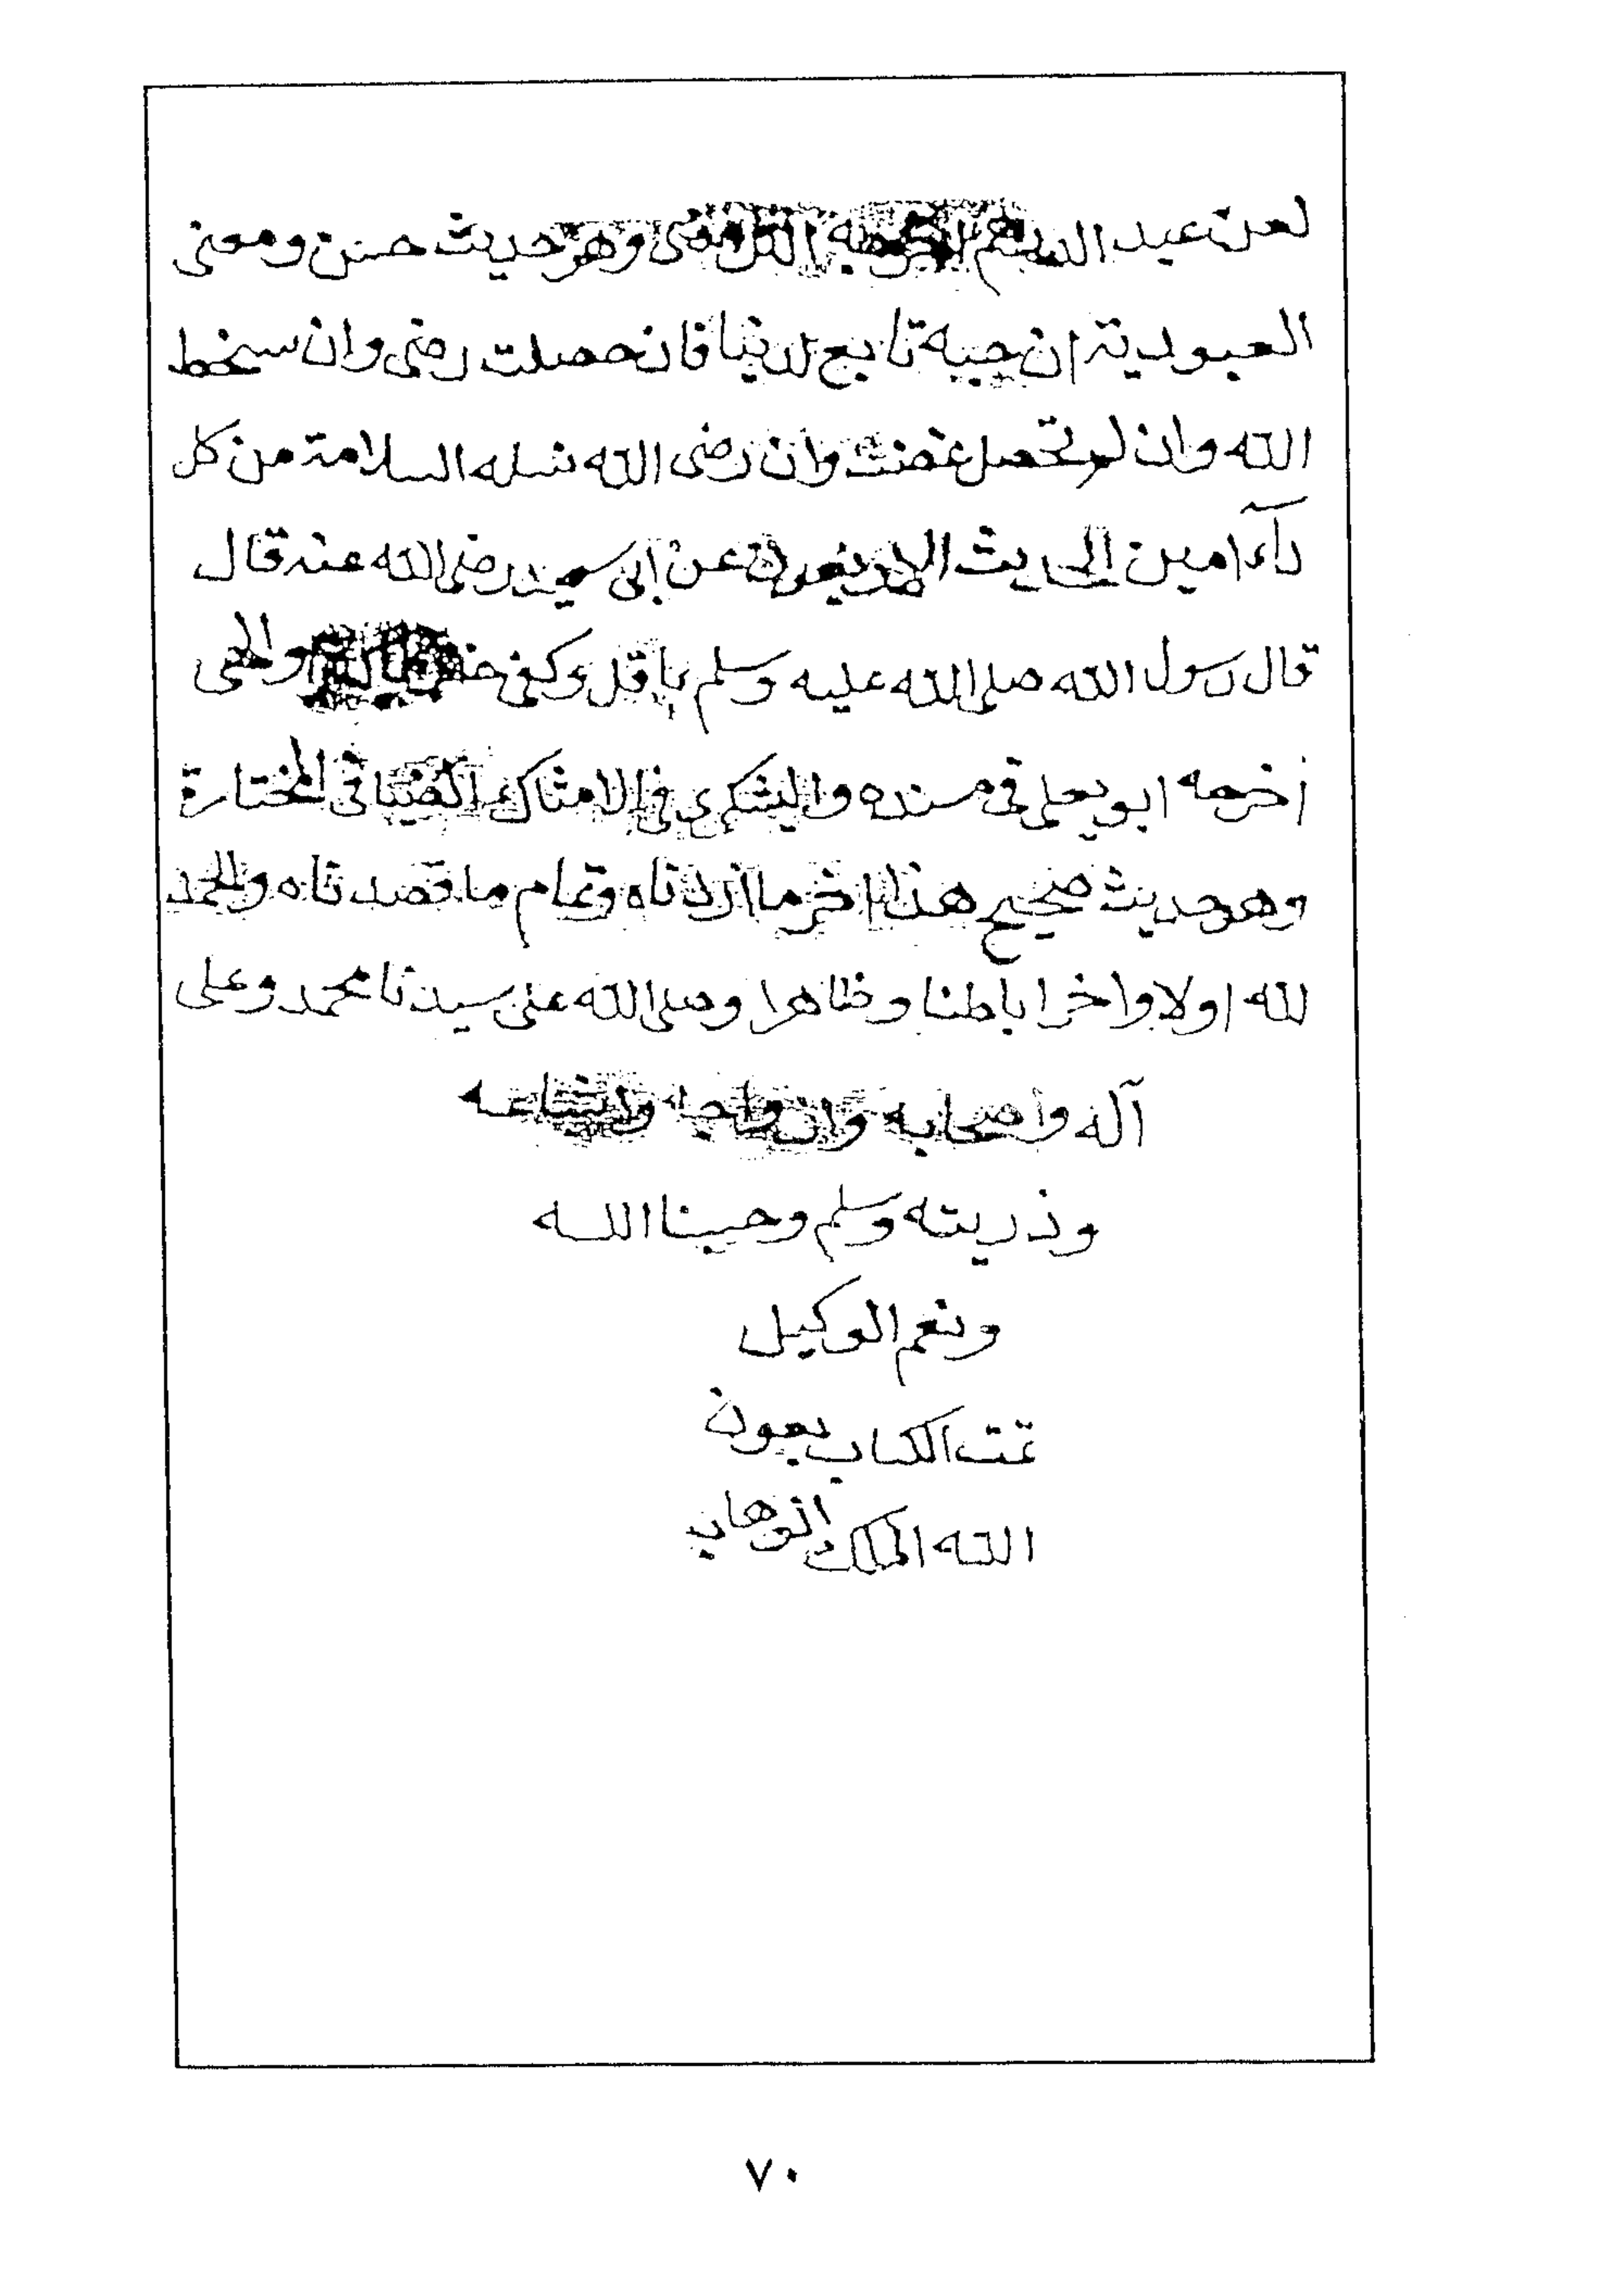 لعن عبد الدرهم اخرجه الترمذى وهو حديث حسن ومعنى
العبودية ان حبه تابع للدنيا فان حصلت رضى وان سخط
الله وان لم تحصل غضب وان رضى الله نسله السلامة من كل
دآء امين الحديث الاربعون عن ابى سعيد رضى الله عنه قال
قال رسول الله صلى الله عليه وسلم ما قل وكفى خير مما كثر والهى
أخرجه ابو يعلى فى مسنده والعسكرى فى الامثال والضيا فى المختارة
وهو حديث صحيح هذا اخر ما اردناه وتمام ما قصدناه والحمد
لله اولا واخرا باطنا وظاهرا وصلى الله على سيدنا محمد وعلى
آله واصحابه وازواجه واتباعه
وذريته وسلم وحسبنا الله
ونعم الوكيل
تمت الكتاب بعون
الله الملك الوهاب
٧٠